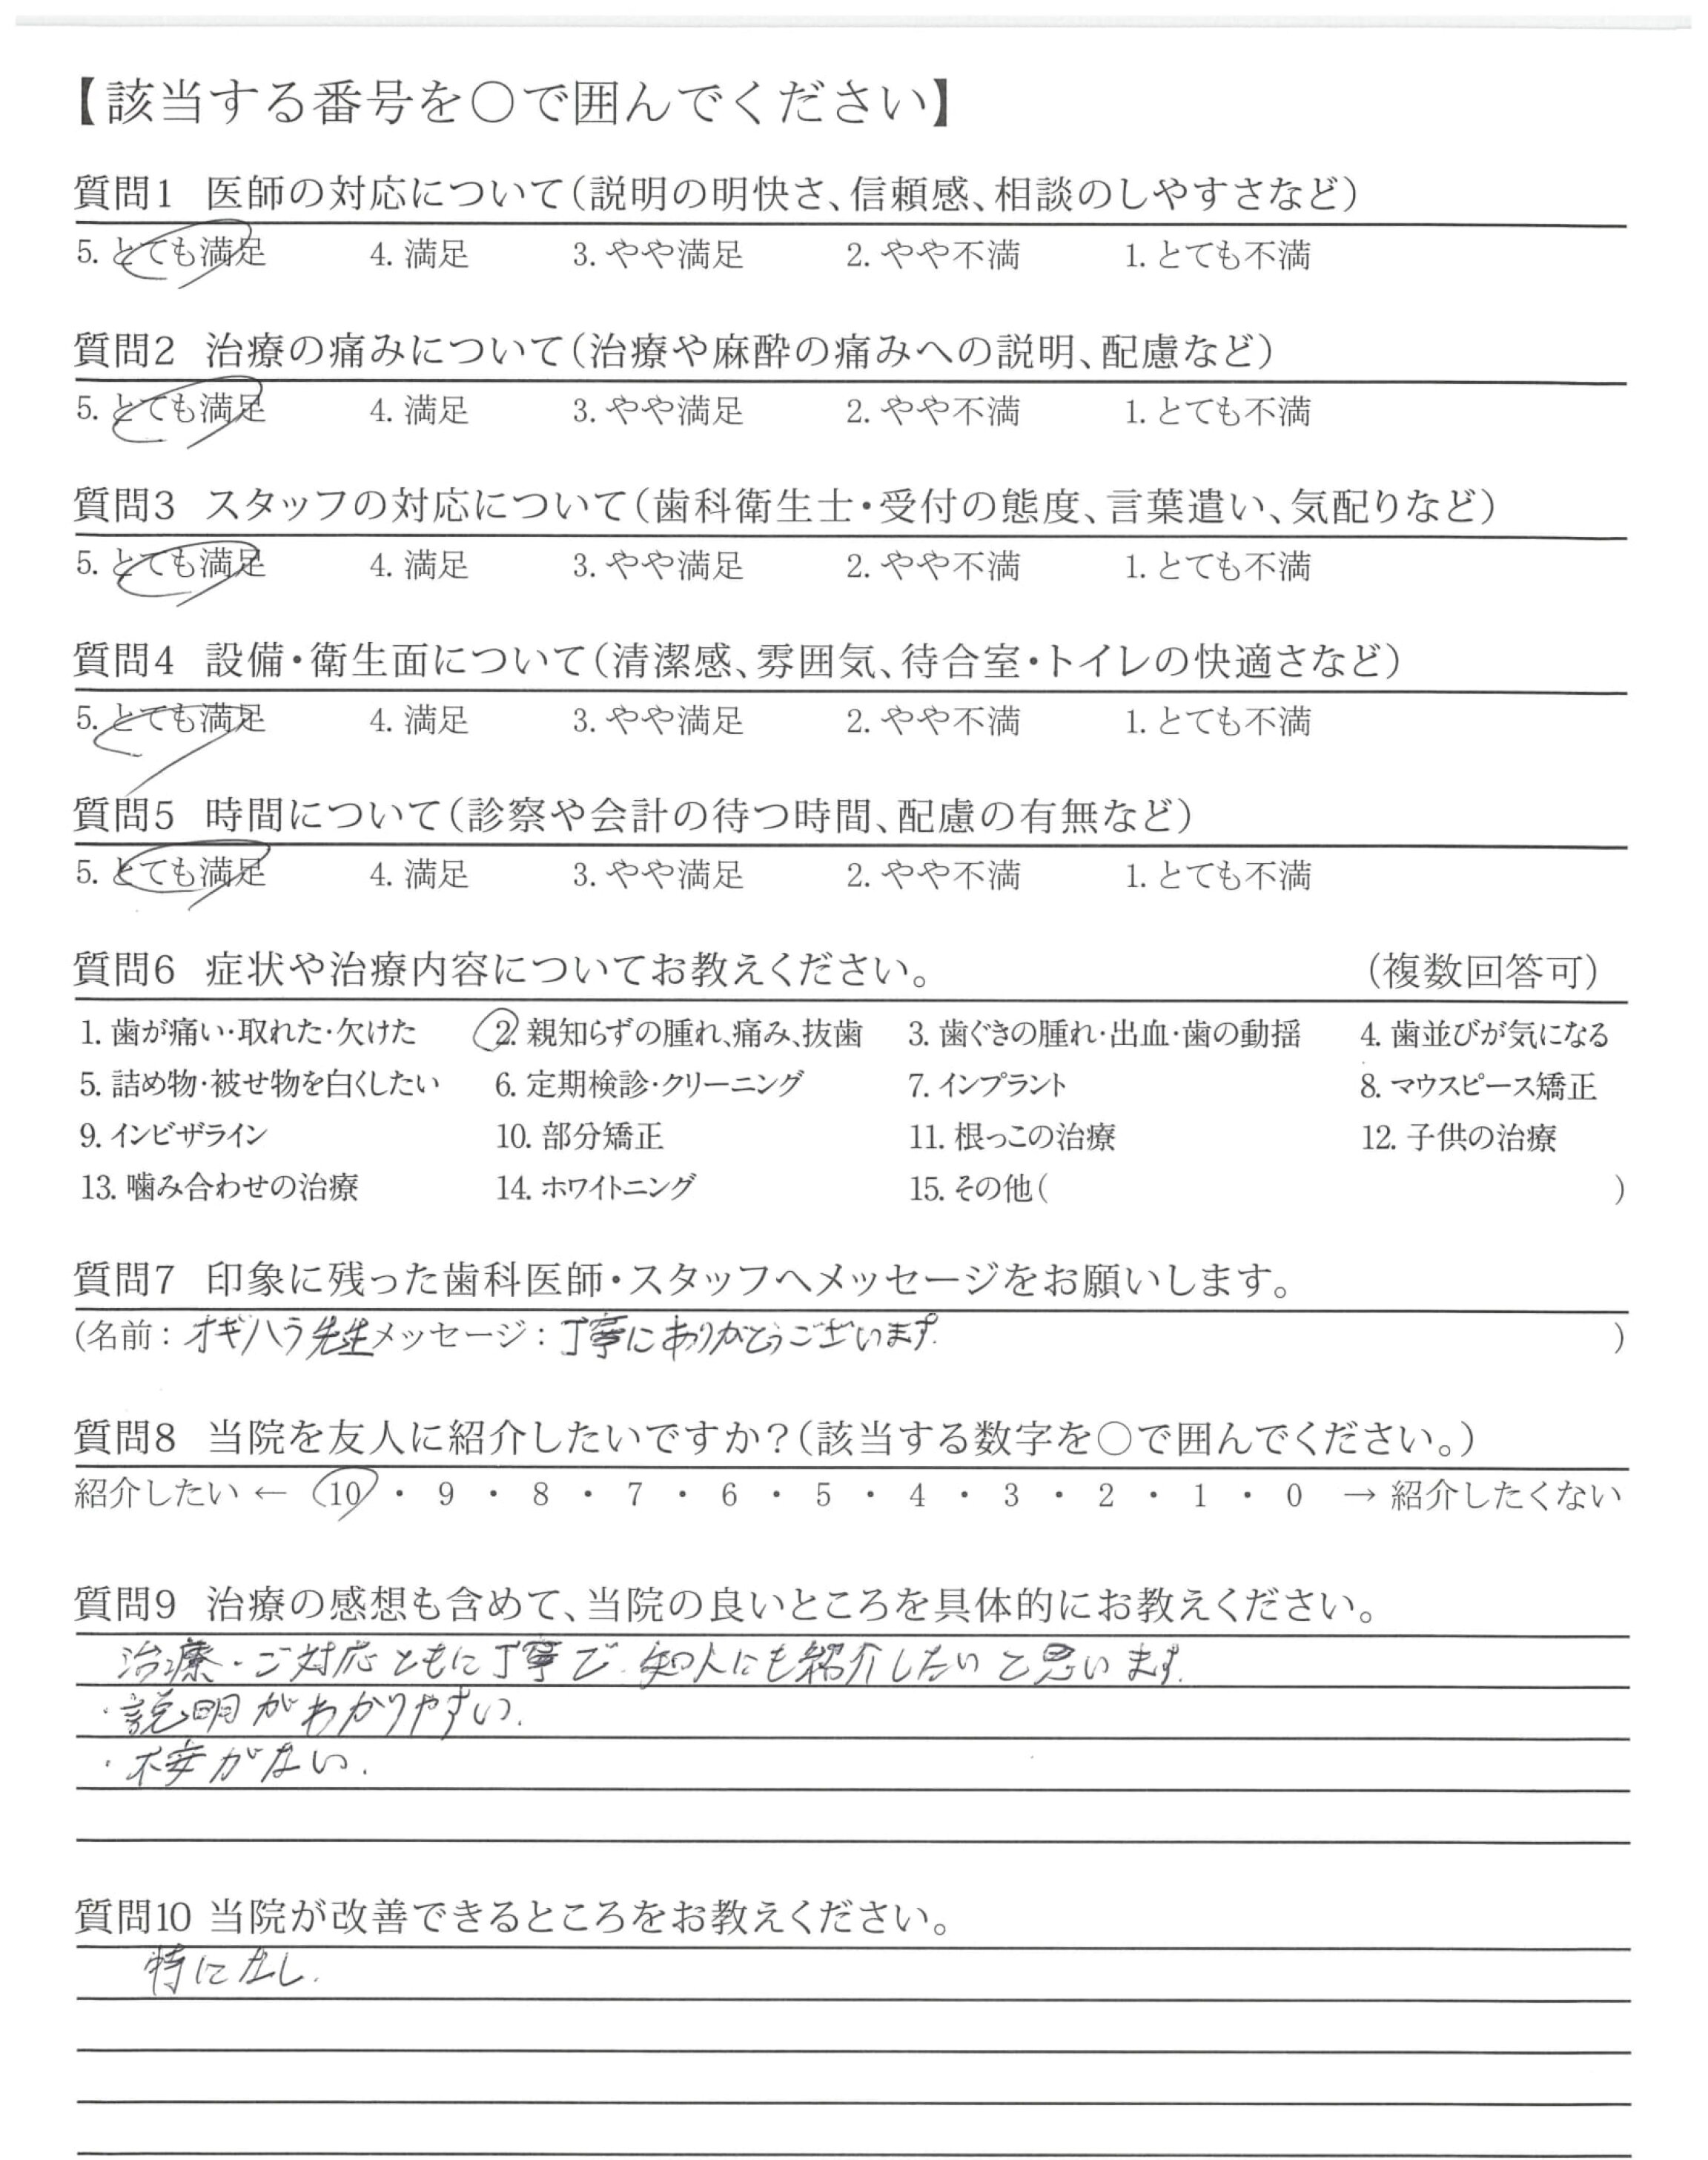 【該当する番号を○で囲んでください】
質問1 医師の対応について(説明の明快さ、信頼感、相談のしやすさなど)
5. とても満足 4. 満足 3. やや満足 2. やや不満 1. とても不満
質問2 治療の痛みについて(治療や麻酔の痛みへの説明、配慮など)
5. とても満足 4. 満足 3. やや満足 2. やや不満 1. とても不満
質問3 スタッフの対応について(歯科衛生士・受付の態度、言葉遣い、気配りなど)
5. とても満足 4. 満足 3. やや満足 2. やや不満 1. とても不満
質問4 設備・衛生面について(清潔感、雰囲気、待合室・トイレの快適さなど)
5. とても満足 4. 満足 3. やや満足 2. やや不満 1. とても不満
質問5 時間について(診察や会計の待つ時間、配慮の有無など)
5. とても満足 4. 満足 3. やや満足 2. やや不満 1. とても不満
質問6 症状や治療内容についてお教えください。 (複数回答可)
1. 歯が痛い・取れた・欠けた 2. 親知らずの腫れ、痛み、抜歯 3. 歯ぐきの腫れ・出血・歯の動揺 4. 歯並びが気になる
5. 詰め物・被せ物を白くしたい 6. 定期検診・クリーニング 7. インプラント 8. マウスピース矯正
9. インビザライン 10. 部分矯正 11. 根っこの治療 12. 子供の治療
13. 噛み合わせの治療 14. ホワイトニング 15. その他( )
質問7 印象に残った歯科医師・スタッフへメッセージをお願いします。
(名前：オギハラ先生メッセージ：丁寧にありがとうございます。 )
質問8 当院を友人に紹介したいですか?(該当する数字を○で囲んでください。)
紹介したい ← 10 ・ 9 ・ 8 ・ 7 ・ 6 ・ 5 ・ 4 ・ 3 ・ 2 ・ 1 ・ 0 → 紹介したくない
質問9 治療の感想も含めて、当院の良いところを具体的にお教えください。
治療・ご対応ともに丁寧で、知人にも紹介したいと思います。
・説明がわかりやすい.
・不安がない.
質問10 当院が改善できるところをお教えください。
特になし.